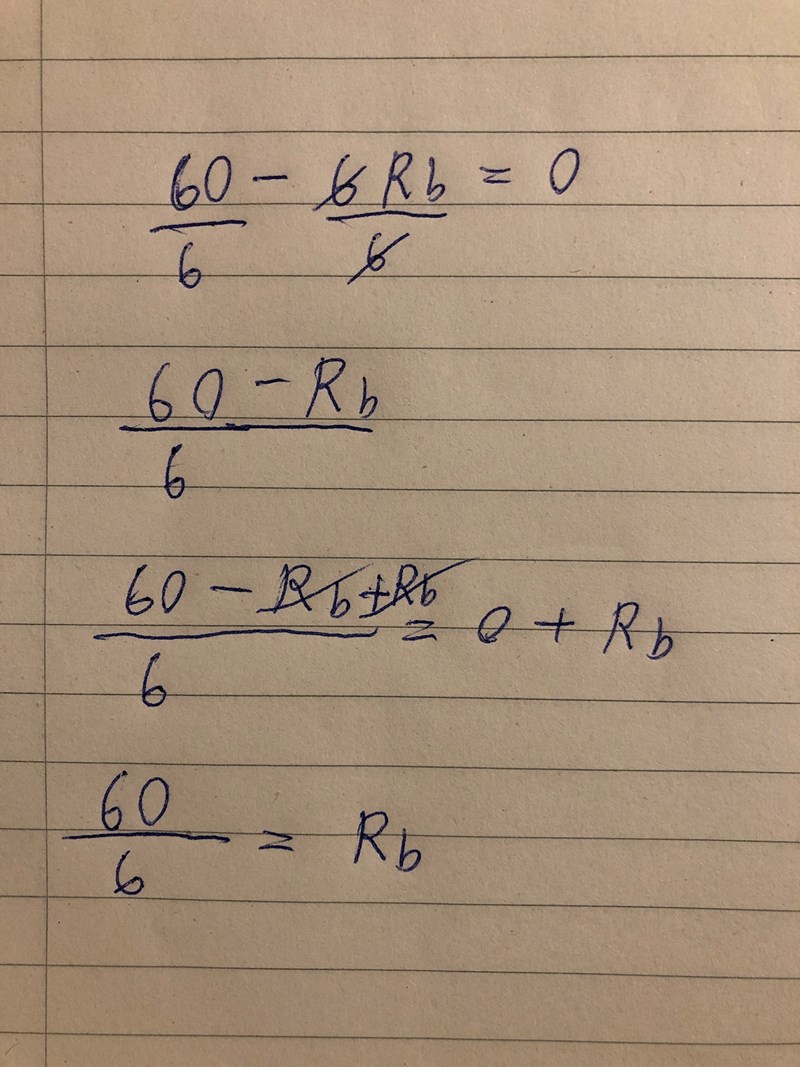 60/6 - 6Rb/6 = 0
60 - Rb/6
60 - Rb + Rb/6 = 0 + Rb
60/6 = Rb